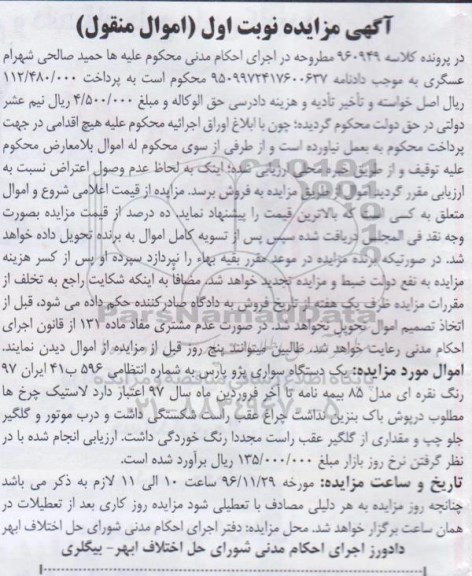 آگهی مزایده نوبت اول (اموال منقول)
در پرونده کلاسه ۹۶۰۹۴۹ مطروحه در اجرای احکام مدنی محکوم علیه ها حمید صالحی شهرام
عسگری به موجب دادنامه ۹۵۰۹۹۷۲۴۱۷۶۰۰۶۳۷ محکوم است به پرداخت ۱۱۲/۴۸۰/۰۰۰
ریال اصل خواسته و تأخیر تأدیه و هزینه دادرسی حق الوکاله و مبلغ ۴/۵۰۰/۰۰۰ ریال نیم عشر
دولتی در حق دولت محکوم گردیده؛ چون با ابلاغ اوراق اجرائیه محکوم علیه هیچ اقدامی در جهت
پرداخت محکوم به بعمل نیاورده است و از طرفی از سوی محکوم له اموال بلامعارض محکوم
علیه توقیف و از طریق خبره محلی ارزیابی شده؛ اینک به لحاظ عدم وصول اعتراض نسبت به
ارزیابی مقرر گردید اموال از طریق مزایده به فروش برسد. مزایده از قیمت اعلامی شروع و اموال
متعلق به کسی است که بالاترین قیمت را پیشنهاد نماید. ده درصد از قیمت مزایده بصورت
وجه نقد فی المجلس دریافت شده سپس پس از تسویه کامل اموال به برنده تحویل داده خواهد
شد. در صورتیکه برنده مزایده در موعد مقرر بقیه بهاء را نپردازد سپرده او پس از کسر هزینه
مزایده به نفع دولت ضبط و مزایده تجدید خواهد شد. مضافاً به اینکه شکایت راجع به تخلف از
مقررات مزایده ظرف یک هفته از تاریخ فروش به دادگاه صادرکننده حکم داده می شود، قبل از
اتخاذ تصمیم اموال تحویل نخواهد شد. در صورت عدم مشتری مفاد ماده ۱۳۱ از قانون اجرای
احکام مدنی رعایت خواهد شد. طالبین میتوانند پنج روز قبل از مزایده از اموال دیدن نمایند.
اموال مورد مزایده: یک دستگاه سواری پژو پارس به شماره انتظامی ۵۹۶ ب۴۱ ایران ۹۷
رنگ نقره ای مدل ۸۵ بیمه نامه تا آخر فروردین ماه سال ۹۷ اعتبار دارد لاستیک چرخ ها
مطلوب درپوش باک بنزین نداشت چراغ عقب راست شکستگی داشت و درب موتور و گلگیر
جلو چپ و مقداری از گلگیر عقب راست مجددا رنگ خوردگی داشت. ارزیابی انجام شده با در
نظر گرفتن نرخ روز بازار مبلغ ۱۳۵/۰۰۰/۰۰۰ ریال برآورد شده است.
تاریخ و ساعت مزایده: مورخه ۹۶/۱۱/۲۹ ساعت ۱۰ الی ۱۱ لازم به ذکر می باشد
چنانچه روز مزایده به هر دلیلی مصادف با تعطیلی شود مزایده روز کاری بعد از تعطیلات در
همان ساعت برگزار خواهد شد. محل مزایده: دفتر اجرای احکام مدنی شورای حل اختلاف ابهر
دادورز اجرای احکام مدنی شورای حل اختلاف ابهر- بیگلری
ParsNamadData